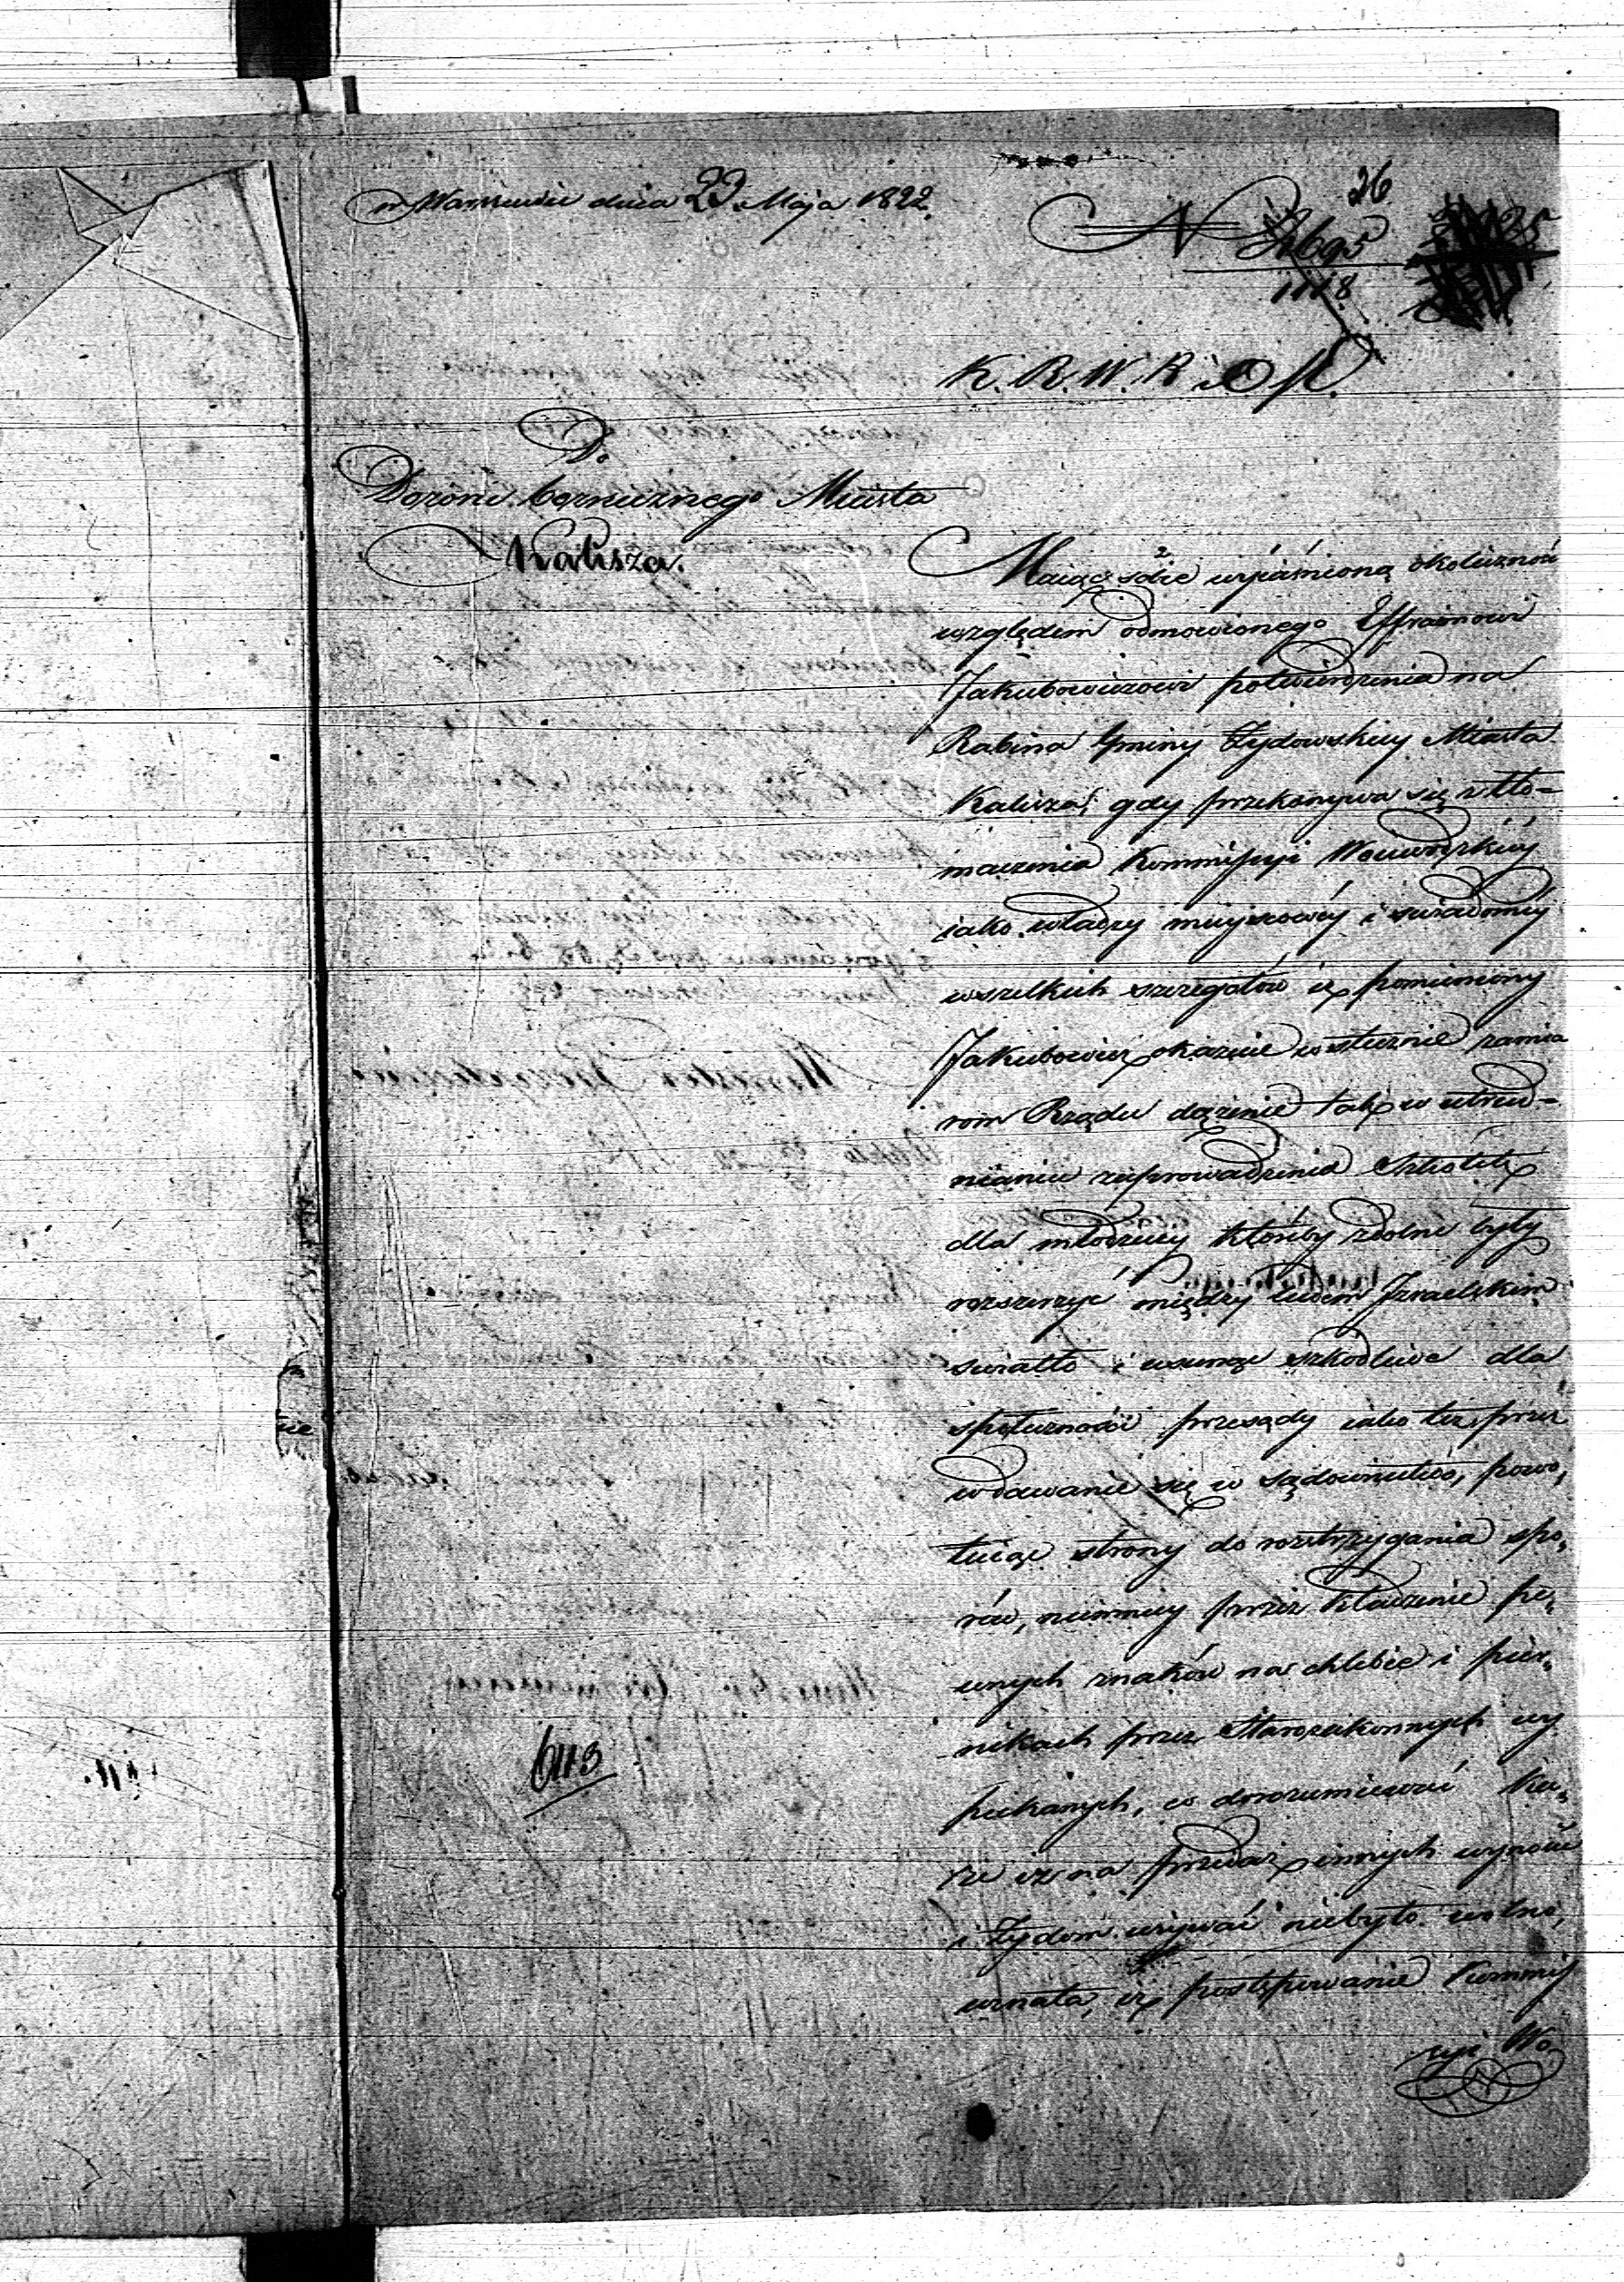 w Warszawie dnia 23 Maja 1822.
26
N 3695
1118
K. R. W. R i O P.
Do
Dozoru Bożnicznego Miasta
Kalisza.
Maiąc sobie wyiaśnioną okoliczność
względem odmowionego Effraimowi
Jakubowiczowi potwierdzenia na
Rabina Gminy Żydowskiey Miasta
Kalisza, gdy przekonywa się z tło-
maczenia Kommissyi Woiewodzkiéy
iako władzy mieyscowéy i świadoméy
wszelkich szczegułów iż pomieniony
Jakubowicz okazuie wstecznie zamia
rom Rządu dążenie tak w utrud-
nianiu zaprowadzenia Szkółek
dla młodzieży któreby zdolne były
rozszerzyć między ludem Izraelskim
swiatło i usunąć szkodliwe dla
społeczności przesądy iako też przez
wdawanie się w sądownictwo, powo,
łuiąc strony do rozstrzygania spo,
rów, niemniey przez kładzenie pe,
wnych znaków na chlebie i pier,
nikach przez Starozakonnych wy
piekanych, co dorozumiewać ka,
że iż na przedaż innych wyrobów
i Żydom używać niebyło wolno,
uznała, iż postępowanie Kommis
syi Wo
6113